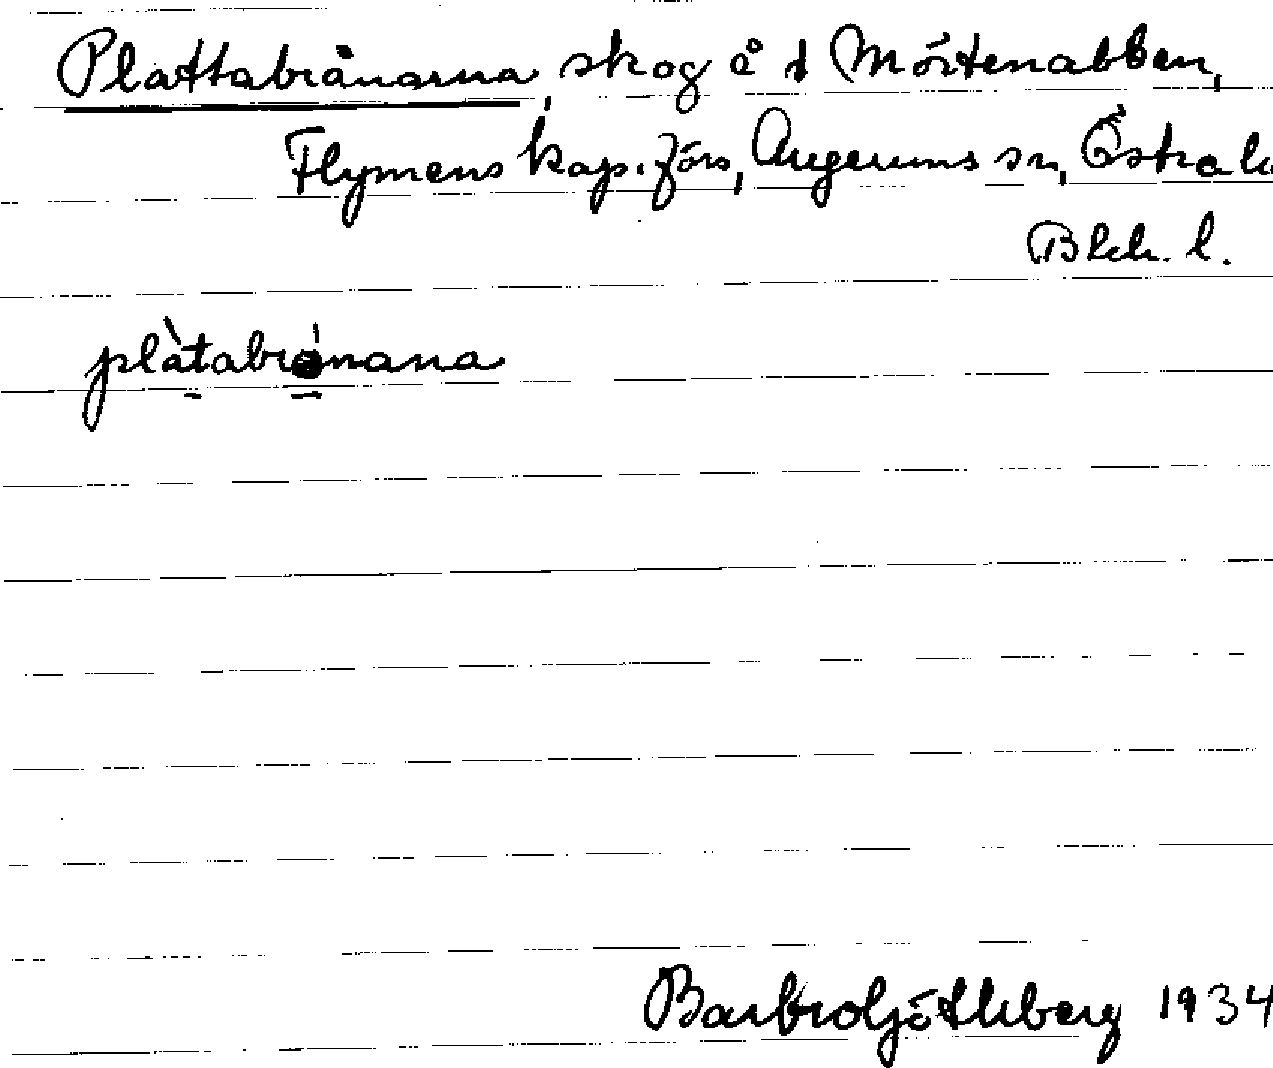 Plattabrånarna, skog å f Mörtenabben,
Flymens kap. förs, Augerums sn, Östra
Blek. l.
plàtabrånana
Barbro Götheberg 1934